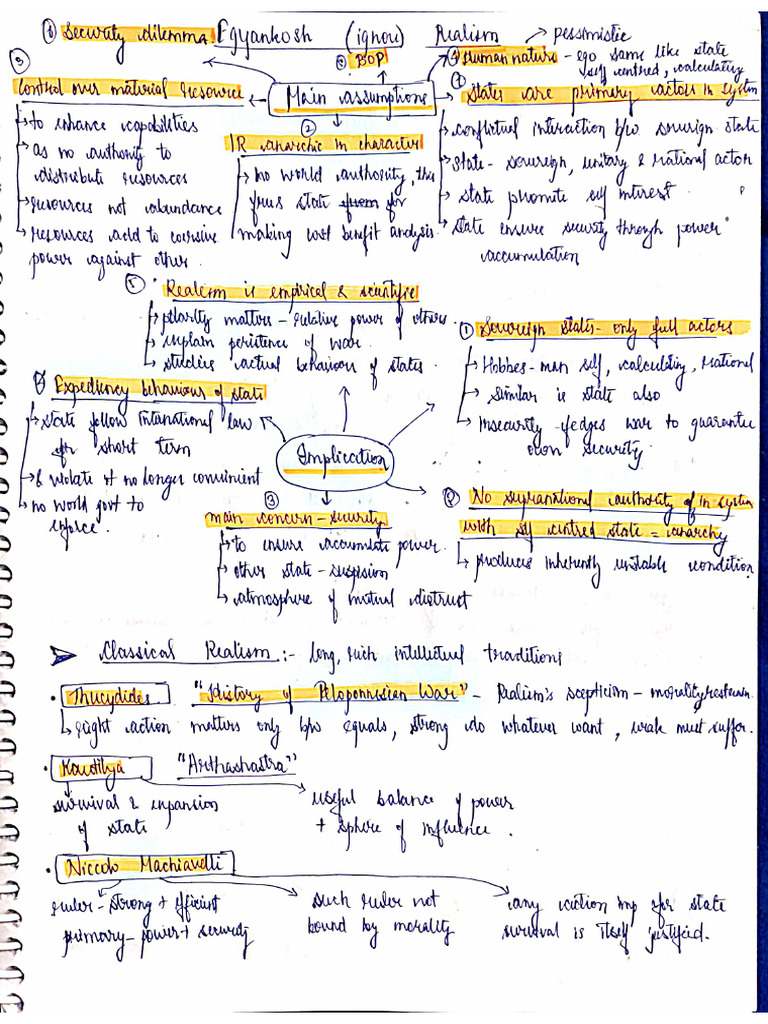 ⑥ Security dilemma Egyankosh (ignou) Realism → pessimistic
④ BOP
Human nature - ego same like state
self centred, calculating
③
Control over material resource
Main assumptions
① States are primary actors in system
to enhance capabilities
as no authority to
distribute resources
resources not abundance
resources add to coersive
power against other.
②
IR anarchic in character
no world authority, this
frus state from for
making cost benefit analysis.
conflictual interaction b/w soverign state
state - soverign, unitary & rational actor
state promote self interest.
state ensure security through power
accumulation
⑤ Realism is empirical & scientific
polarity matters - relative power of others.
explain peristence of war.
studies actual behaviour of states.
① Sovereign states - only full actors
Hobbes - man self, calculating, rational
similar is state also
Insecurity - fedges war to guarantee
own security.
④ Expediency behaviour of state
state follow International law
for short term
& violate if no longer convinient
no world govt to
enforce.
Implication
③
main concern - security
to ensure accumulate power.
other state - suspision
atmosphere of mutual distrust
② No supranational authority of in system
with self centred state = anarchy
produces inherently unstable condition
➤ Classical Realism :- long, rich intellectual traditions
• Thucydides "History of Peloponnesian War" - Realism's scepticism - morality restrain
right action matters only b/w equals, strong do whatever want, weak must suffer.
• Kautilya "Arthashastra"
survival & expansion
of state
useful balance of power
+ sphere of influence.
• Niccolo Machiavelli
ruler - strong + efficient
primary - power + security
such ruler not
bound by morality
any action imp for state
survival is itself justified.